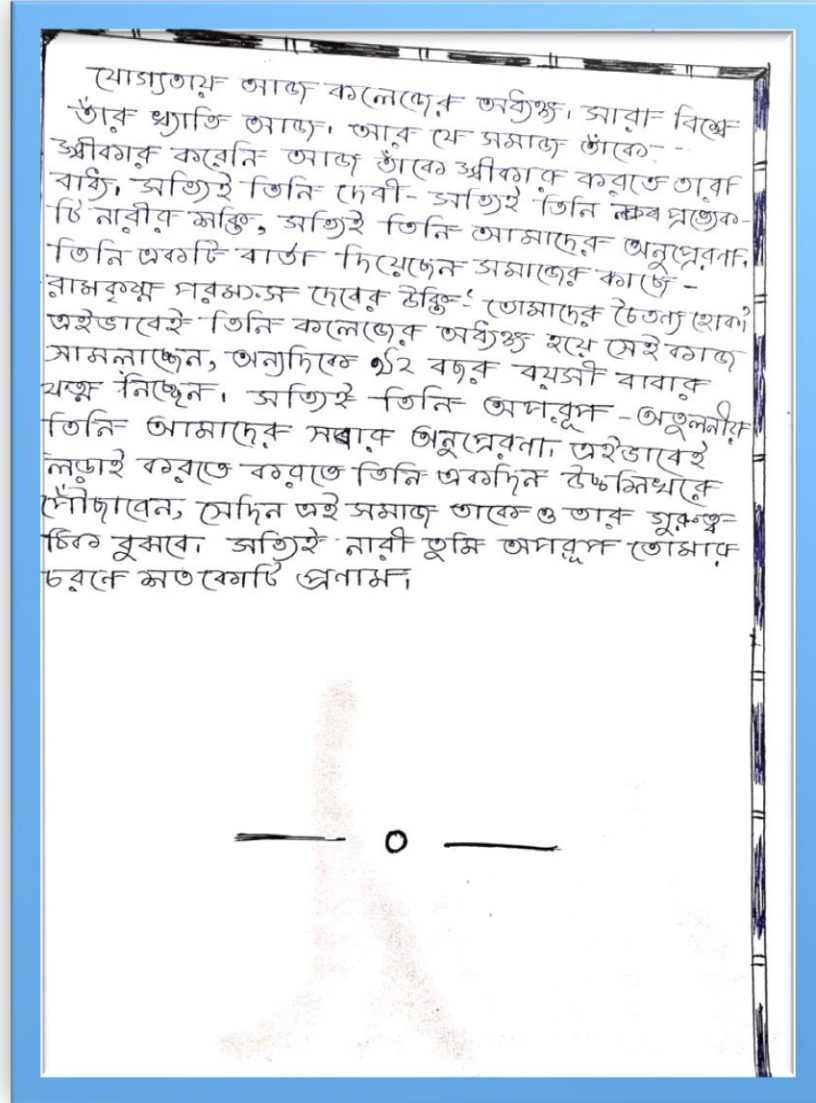 যোগ্যতায় আজ কলেজের অধ্যক্ষ। সারা বিশ্বে
তাঁর খ্যাতি আজ। আর যে সমাজ তাঁকে
স্বীকার করেনি আজ তাঁকে স্বীকার করতে তারা
বাধ্য। সত্যিই তিনি দেবী- সত্যিই তিনি প্রত্যেক-
টি নারীর শক্তি, সত্যিই তিনি আমাদের অনুপ্রেরণা।
তিনি একটি বার্তা দিয়েছেন সমাজের কাছে -
রামকৃষ্ণ পরমহংস দেবের উক্তি: তোমাদের চৈতন্য হোক।
এইভাবেই তিনি কলেজের অধ্যক্ষ হয়ে সেই কাজ
সামলাচ্ছেন, অন্যদিকে ৯২ বছর বয়সী বাবার
যত্ন নিচ্ছেন। সত্যিই তিনি অপরূপ - অতুলনীয়
তিনি আমাদের সবার অনুপ্রেরণা। এইভাবেই
লড়াই করতে করতে তিনি একদিন উচ্চশিখরে
পৌঁছাবেন, সেদিন এই সমাজ তাকে ও তার গুরুত্ব
ঠিক বুঝবে। সত্যিই নারী তুমি অপরূপ তোমার
চরনে শতকোটি প্রণাম।